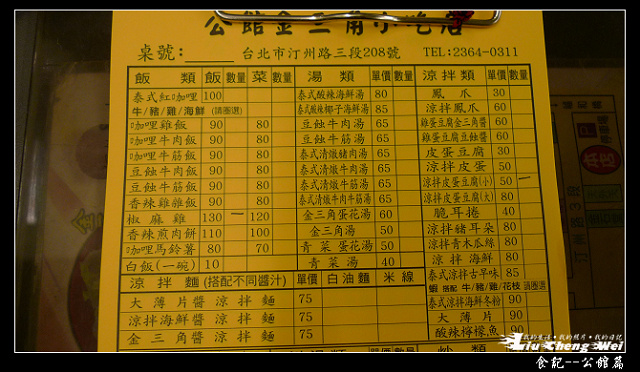 公館金三角小吃店
桌號: 台北市汀州路三段208號 TEL:2364-0311
飯 類 飯 數量 菜 數量
泰式紅咖哩 100
牛/豬/雞/海鮮 (請圈選)
咖哩雞飯 90 80
咖哩牛肉飯 90 80
咖哩牛筋飯 90 80
豆蝕牛肉飯 90 80
豆蝕牛筋飯 90 80
香辣雞雜飯 90 80
椒麻雞 130 一 120
香辣煎肉餅 110 100
咖哩馬鈴薯 80 70
白飯(一碗) 10
湯 類 單價 數量
泰式酸辣海鮮湯 80
泰式酸辣椰子海鮮湯 85
豆蝕牛肉湯 65
豆蝕牛筋湯 65
泰式清燉豬肉湯 65
泰式清燉牛肉湯 65
泰式清燉牛筋湯 65
泰式清燉牛雜湯 65
金三角蛋花湯 60
金三角湯 50
青菜蛋花湯 50
青菜湯 40
涼拌類 單價 數量
鳳爪 30
涼拌鳳爪 60
雞蛋豆腐金三角醬 60
雞蛋豆腐豆蝕醬 60
皮蛋豆腐 30
涼拌皮蛋 50
涼拌皮蛋豆腐(小) 50 一
涼拌皮蛋豆腐(大) 80
脆耳捲 40
涼拌豬耳朵 80
涼拌青木瓜絲 80
涼拌海鮮 80
泰式涼拌古早味 85
蝦 搭配 牛/豬/雞/花枝 請圈選
泰式涼拌海鮮冬粉 90
大薄片 90
酸辣檸檬魚 90
涼拌麵(搭配不同醬汁) 單價 白油麵 米線
大薄片醬涼拌麵 75
涼拌海鮮醬涼拌麵 75
金三角醬涼拌麵 75
單價 數量
我的生活•我的照片•我的日記
Liu Cheng Wei
食記--公館篇